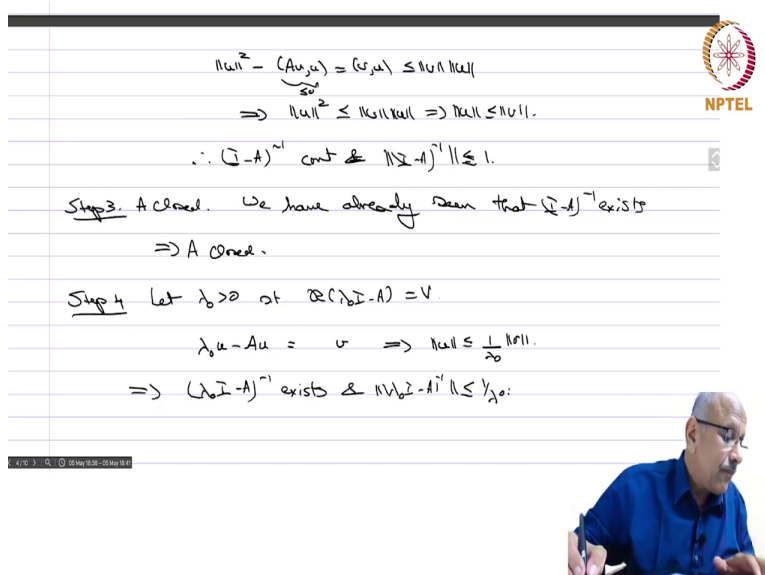 ‖u‖² − (Au,u) = (v,u) ≤ ‖v‖‖u‖
≤0
⇒ ‖u‖² ≤ ‖v‖‖u‖ ⇒ ‖u‖ ≤ ‖v‖.
∴ (I−A)⁻¹ cont & ‖(I−A)⁻¹‖ ≤ 1.
Step 3. A closed. We have already seen that (I−A)⁻¹ exists
⇒ A closed.
Step 4 Let λ₀>0 st R(λ₀I−A) = V
λ₀u − Au = v ⇒ ‖u‖ ≤ 1/λ₀ ‖v‖.
⇒ (λ₀I−A)⁻¹ exists & ‖(λ₀I−A)⁻¹‖ ≤ 1/λ₀.
NPTEL
4/10 05 May 18:38 – 05 May 18:41